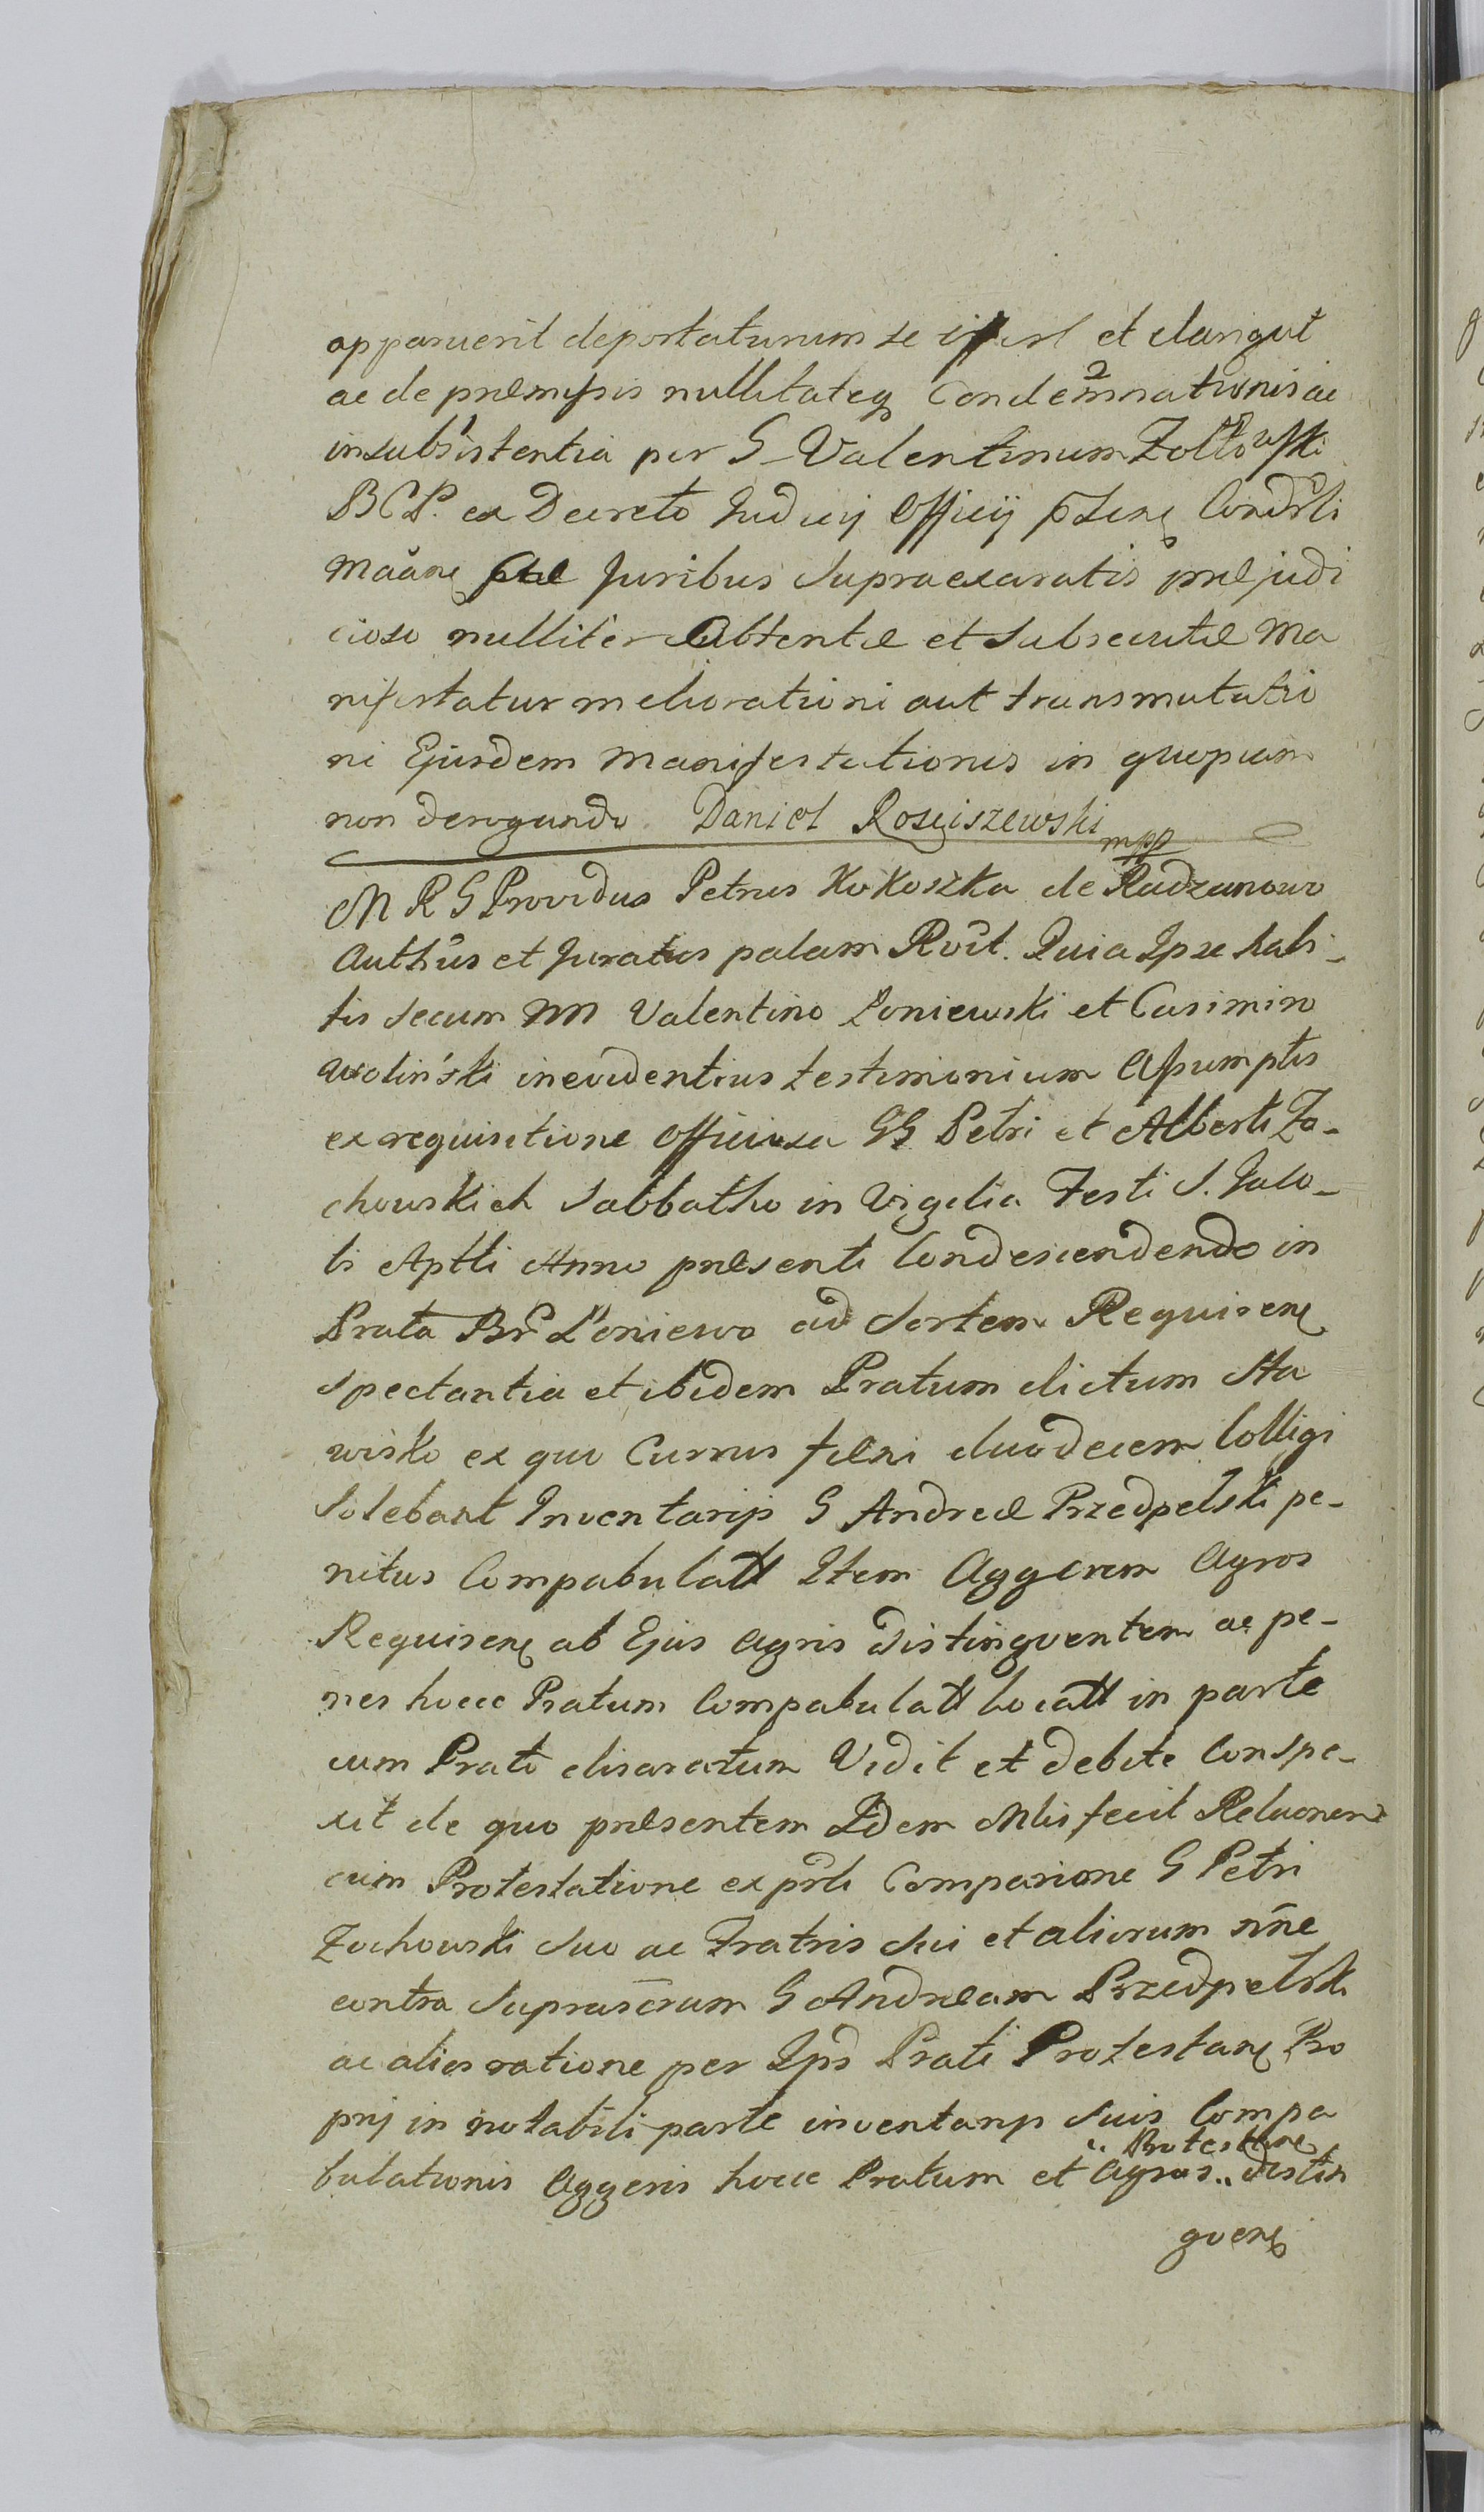 apparuerit deportaturum se et
ac de præmissis nullitateq Condemnationis ac
insubsistentia per G Valentinum Zołtowski
BCP. ex Decreto Judicij Officij
Juribus Supraexaratis præjudi
ciose nulliter Obtentæ et Subsecutæ Ma
nifestatur meliorationi aut transmutatio
ni Ejusdem Manifestationis in quopiam
non derogando. Daniel Rosciszewski
mpp
M R G Providus Petrus Kokoszka de Radzanowo
Authūs et Juratus palam Rōit. Quia Ipse habi-
tis secum NN Valentino Łoniewski et Casimiro
Woliński inevidentius testimonium Assumptis
ex requisitione Officiosa GG Petri et Alberti Zo-
chowskich Sabbatho in Vigilia Festi S. Jaco-
bi Aptli Anno præsenti Condescendendo in
Prata Br Łoniewo ad Sortem Requiren
spectantia et ibidem Pratum dictum Sta
wisko ex quo Currus fæni duodecem Colligi
Solebant Inventarijs G Andreæ Przedpełski pe-
nitus Compabulatt Item Aggerem Agros
Requiren ab Ejus agris distingventem ac pe-
nes hocce Pratum Compabulatt locatt in parte
cum Prato disaratum Vidit et debite Conspe-
xit de quo præsentem Idem Mlis fecit Relaonem
cum Protestatione ex prli Comparione G Petri
Zochowski Suo ac Fratris Sui et aliorum nīne
contra Suprascrum G Andræam Przedpełski
ac alios ratione per Ips Prati Protestan Pro
prij in notabili parte inventarijs Suis Compa
bulationis Aggeris hocce Pratum et Agros „ Protestan „ distin
gven